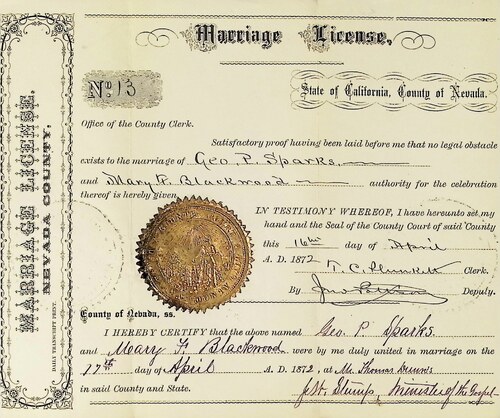 Marriage License,
MARRIAGE LICENSE.
NEVADA COUNTY.
DAILY TRANSCRIPT PRINT.
No. 13
State of California, County of Nevada.
Office of the County Clerk.
Satisfactory proof having been laid before me that no legal obstacle
exists to the marriage of Geo. P. Sparks,
and Mary F. Blackwood authority for the celebration
thereof is hereby given.
IN TESTIMONY WHEREOF, I have hereunto set my
hand and the Seal of the County Court of said County
this 16th day of April
A. D. 1872
T. C. Plunkett Clerk.
By Deputy.
County of Nevada, ss.
I HEREBY CERTIFY that the above named Geo. P Sparks
and Meary F. Blackwood were by me duly united in marriage on the
17th day of April A. D. 1872, at Mr. Thomas Dunn's
in said County and State. J. W. Stump, Minister of the Gospel